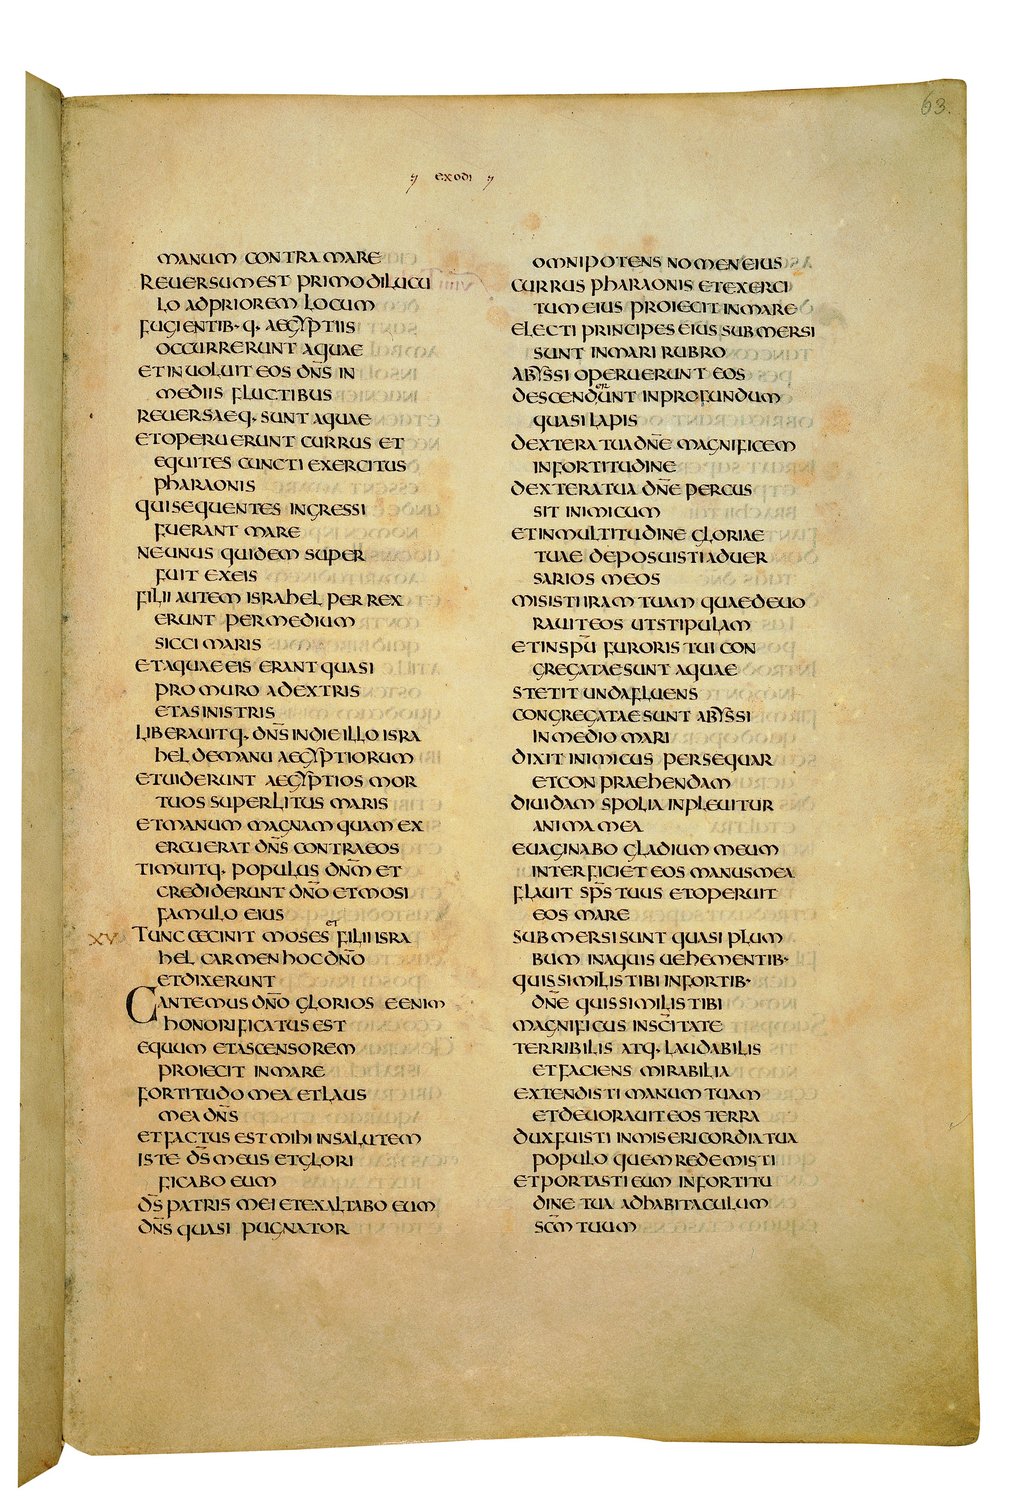 63.
exodi
manum contra mare
reuersum est primo dilucu
lo ad priorem locum
fugientib· q· aegyptiis
occurrerunt aquae
et inuoluit eos dn̅s in
mediis fluctibus
reuersaeq· sunt aquae
et operuerunt currus et
equites cuncti exercitus
pharaonis
qui sequentes ingressi
fuerant mare
ne unus quidem super
fuit ex eis
filii autem israhel perrex
erunt per medium
sicci maris
et aquae eis erant quasi
pro muro a dextris
et a sinistris
liberauitq· dn̅s in die illo isra
hel de manu aegyptiorum
et uiderunt aegyptios mor
tuos super litus maris
et manum magnam quam ex
ercuerat dn̅s contra eos
timuitq· populus dn̅m et
crediderunt dn̅o et mosi
famulo eius
xv tunc cecinit moses et filii isra
hel carmen hoc dn̅o
et dixerunt
Cantemus dn̅o gloriose enim
honorificatus est
equum et ascensorem
proiecit in mare
fortitudo mea et laus
mea dn̅s
et factus est mihi in salutem
iste d̅s meus et glori
ficabo eum
d̅s patris mei et exaltabo eum
dn̅s quasi pugnator
omnipotens nomen eius
currus pharaonis et exerci
tum eius proiecit in mare
electi principes eius submersi
sunt in mari rubro
abyssi operuerunt eos
descenderunt in profundum
quasi lapis
dextera tua dn̅e magnificem
in fortitudine
dextera tua dn̅e percus
sit inimicum
et in multitudine gloriae
tuae deposuisti aduer
sarios meos
misisti iram tuam quae deuo
rauit eos ut stipulam
et in sp̅u furoris tui con
gregatae sunt aquae
stetit unda fluens
congregatae sunt abyssi
in medio mari
dixit inimicus persequar
et conpraehendam
diuidam spolia inpleuitur
anima mea
euaginabo gladium meum
interficiet eos manus mea
flauit sp̅s tuus et operuit
eos mare
submersi sunt quasi plum
bum in aquis uehementib·
quis similis tibi in fortib·
dn̅e quis similis tibi
magnificus in sc̅itate
terribilis atq· laudabilis
et faciens mirabilia
extendisti manum tuam
et deuorauit eos terra
dux fuisti in misericordia tua
populo quem redemisti
et portasti eum in fortitu
dine tua ad habitaculum
sc̅m tuum